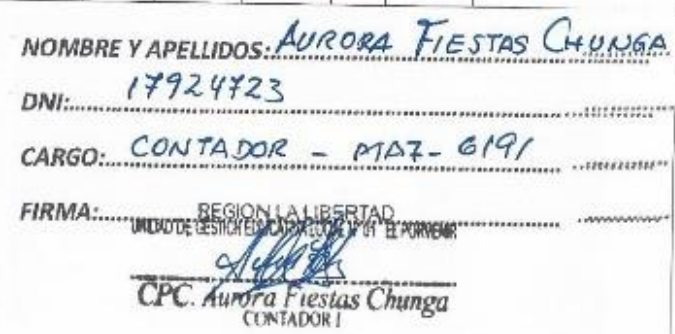 NOMBRE Y APELLIDOS: AURORA FIESTAS CHUNGA
DNI: 17924723
CARGO: CONTADOR -
FIRMA:
REGION LA LIBERTAD
UNIDAD DE GESTION EDUCATIVA LOCAL Nº 01 EL PORVENIR
CPC. Aurora Fiestas Chunga
CONTADOR I